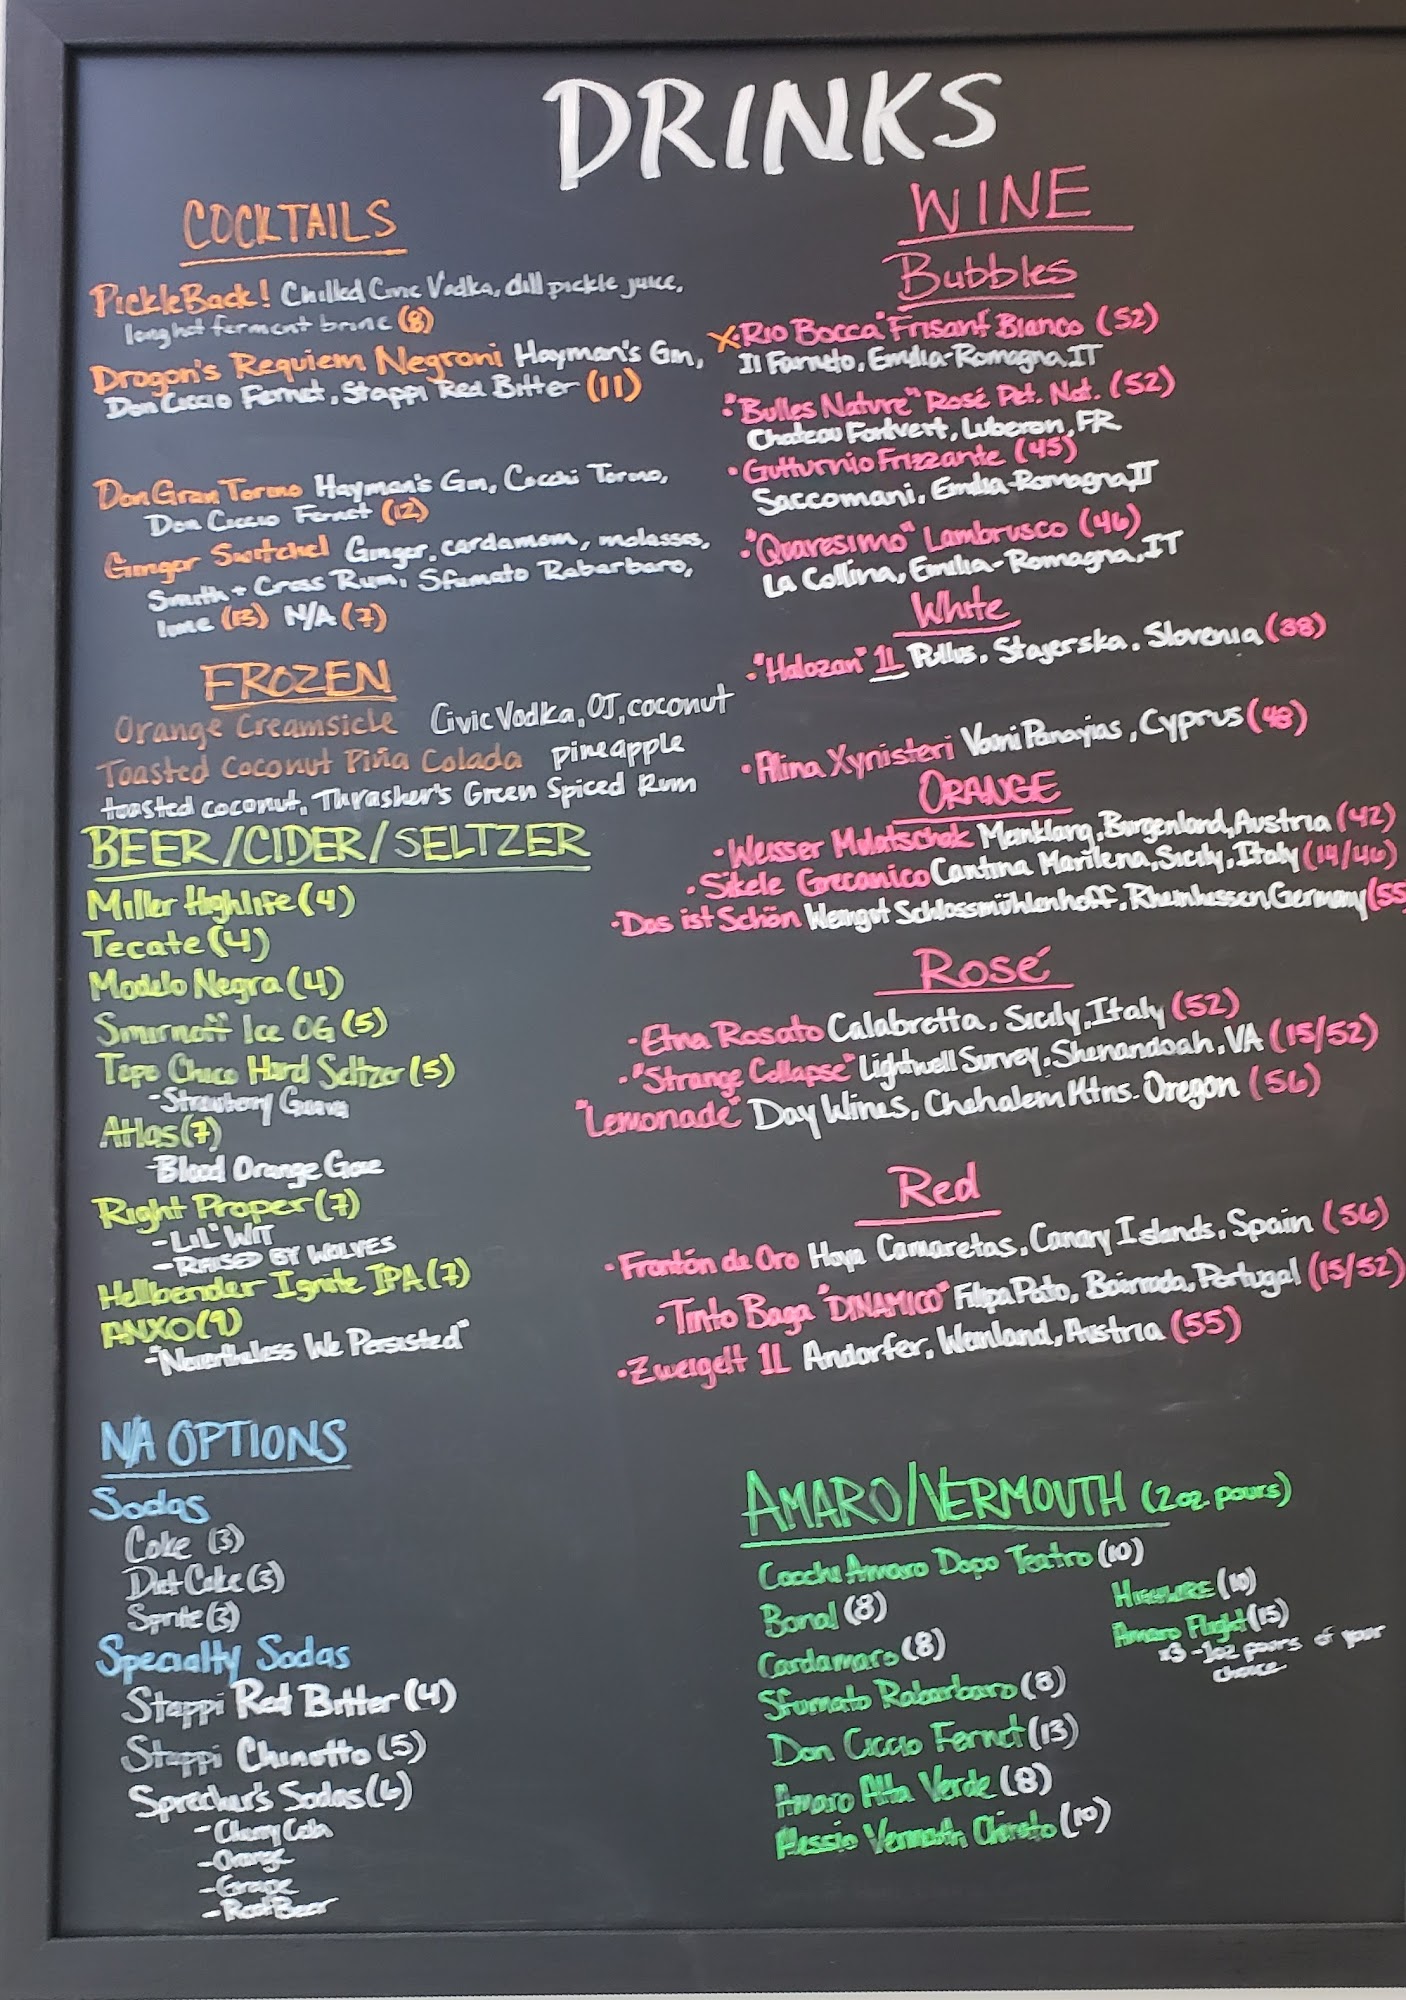 DRINKS
COCKTAILS
PickleBack! Chilled Civic Vodka, dill pickle juice,
long hot ferment brine (8)
Dragon's Requiem Negroni Hayman's Gin,
Don Ciccio Fernet, Stappi Red Bitter (11)
Don Gran Torino Hayman's Gin, Cocchi Torino,
Don Ciccio Fernet (12)
Ginger Switchel Ginger, cardamom, molasses,
Smith + Cross Rum, Sfumato Rabarbaro,
lime (13) N/A (7)
FROZEN
Orange Creamsicle Civic Vodka, OJ, coconut
Toasted Coconut Piña Colada pineapple
toasted coconut, Thrasher's Green Spiced Rum
BEER/CIDER/SELTZER
Miller Highlife (4)
Tecate (4)
Modelo Negra (4)
Smirnoff Ice OG (5)
Topo Chico Hard Seltzer (5)
-Strawberry Guava
Atlas (7)
-Blood Orange Gose
Right Proper (7)
-LIL' WIT
-RAISED BY WOLVES
Hellbender Ignite IPA (7)
ANXO (9)
-"Nevertheless We Persisted"
N/A OPTIONS
Sodas
Coke (3)
Diet Coke (3)
Sprite (3)
Specialty Sodas
Stappi Red Bitter (4)
Stappi Chinotto (5)
Sprecher's Sodas (6)
-Cherry Cola
-Orange
-Grape
-Root Beer
WINE
Bubbles
X "Rio Bocca" Frisant Bianco (52)
Il Farneto, Emilia-Romagna, IT
• "Bulles Nature" Rosé Pet. Nat. (52)
Chateau Fontvert, Luberon, FR
• Gutturnio Frizzante (45)
Saccomani, Emilia-Romagna, IT
• "Quaresimo" Lambrusco (46)
La Collina, Emilia-Romagna, IT
White
• "Halozan" 1L Pullus, Stajerska, Slovenia (38)
• Alina Xynisteri Vouni Panayias, Cyprus (48)
ORANGE
• Weisser Mulatschak Meinklang, Burgenland, Austria (42)
• Sikele Grecanico Cantina Marilena, Sicily, Italy (14/46)
• Das ist Schön Weingut Schlossmühlenhoff, Rheinhessen, Germany (55
Rosé
• Etna Rosato Calabretta, Sicily, Italy (52)
• "Strange Collapse" Lightwell Survey, Shenandoah, VA (15/52)
"Lemonade" Day Wines, Chehalem Mtns. Oregon (56)
Red
• Frontón de Oro Hoya Camaretas, Canary Islands, Spain (56)
• Tinto Baga "DINAMICO" Filipa Pato, Bairrada, Portugal (15/52)
• Zweigelt 1L Andorfer, Weinland, Austria (55)
AMARO/VERMOUTH (2oz pours)
Cocchi Amaro Dopo Teatro (10)
Bonal (8)
Cardamaro (8)
Sfumato Rabarbaro (8)
Don Ciccio Fernet (13)
Amaro Alta Verde (8)
Alessio Vermouth Chinato (10)
HIGHWIRE (10)
Amaro Flight (15)
*3 -1oz pours of your
choice